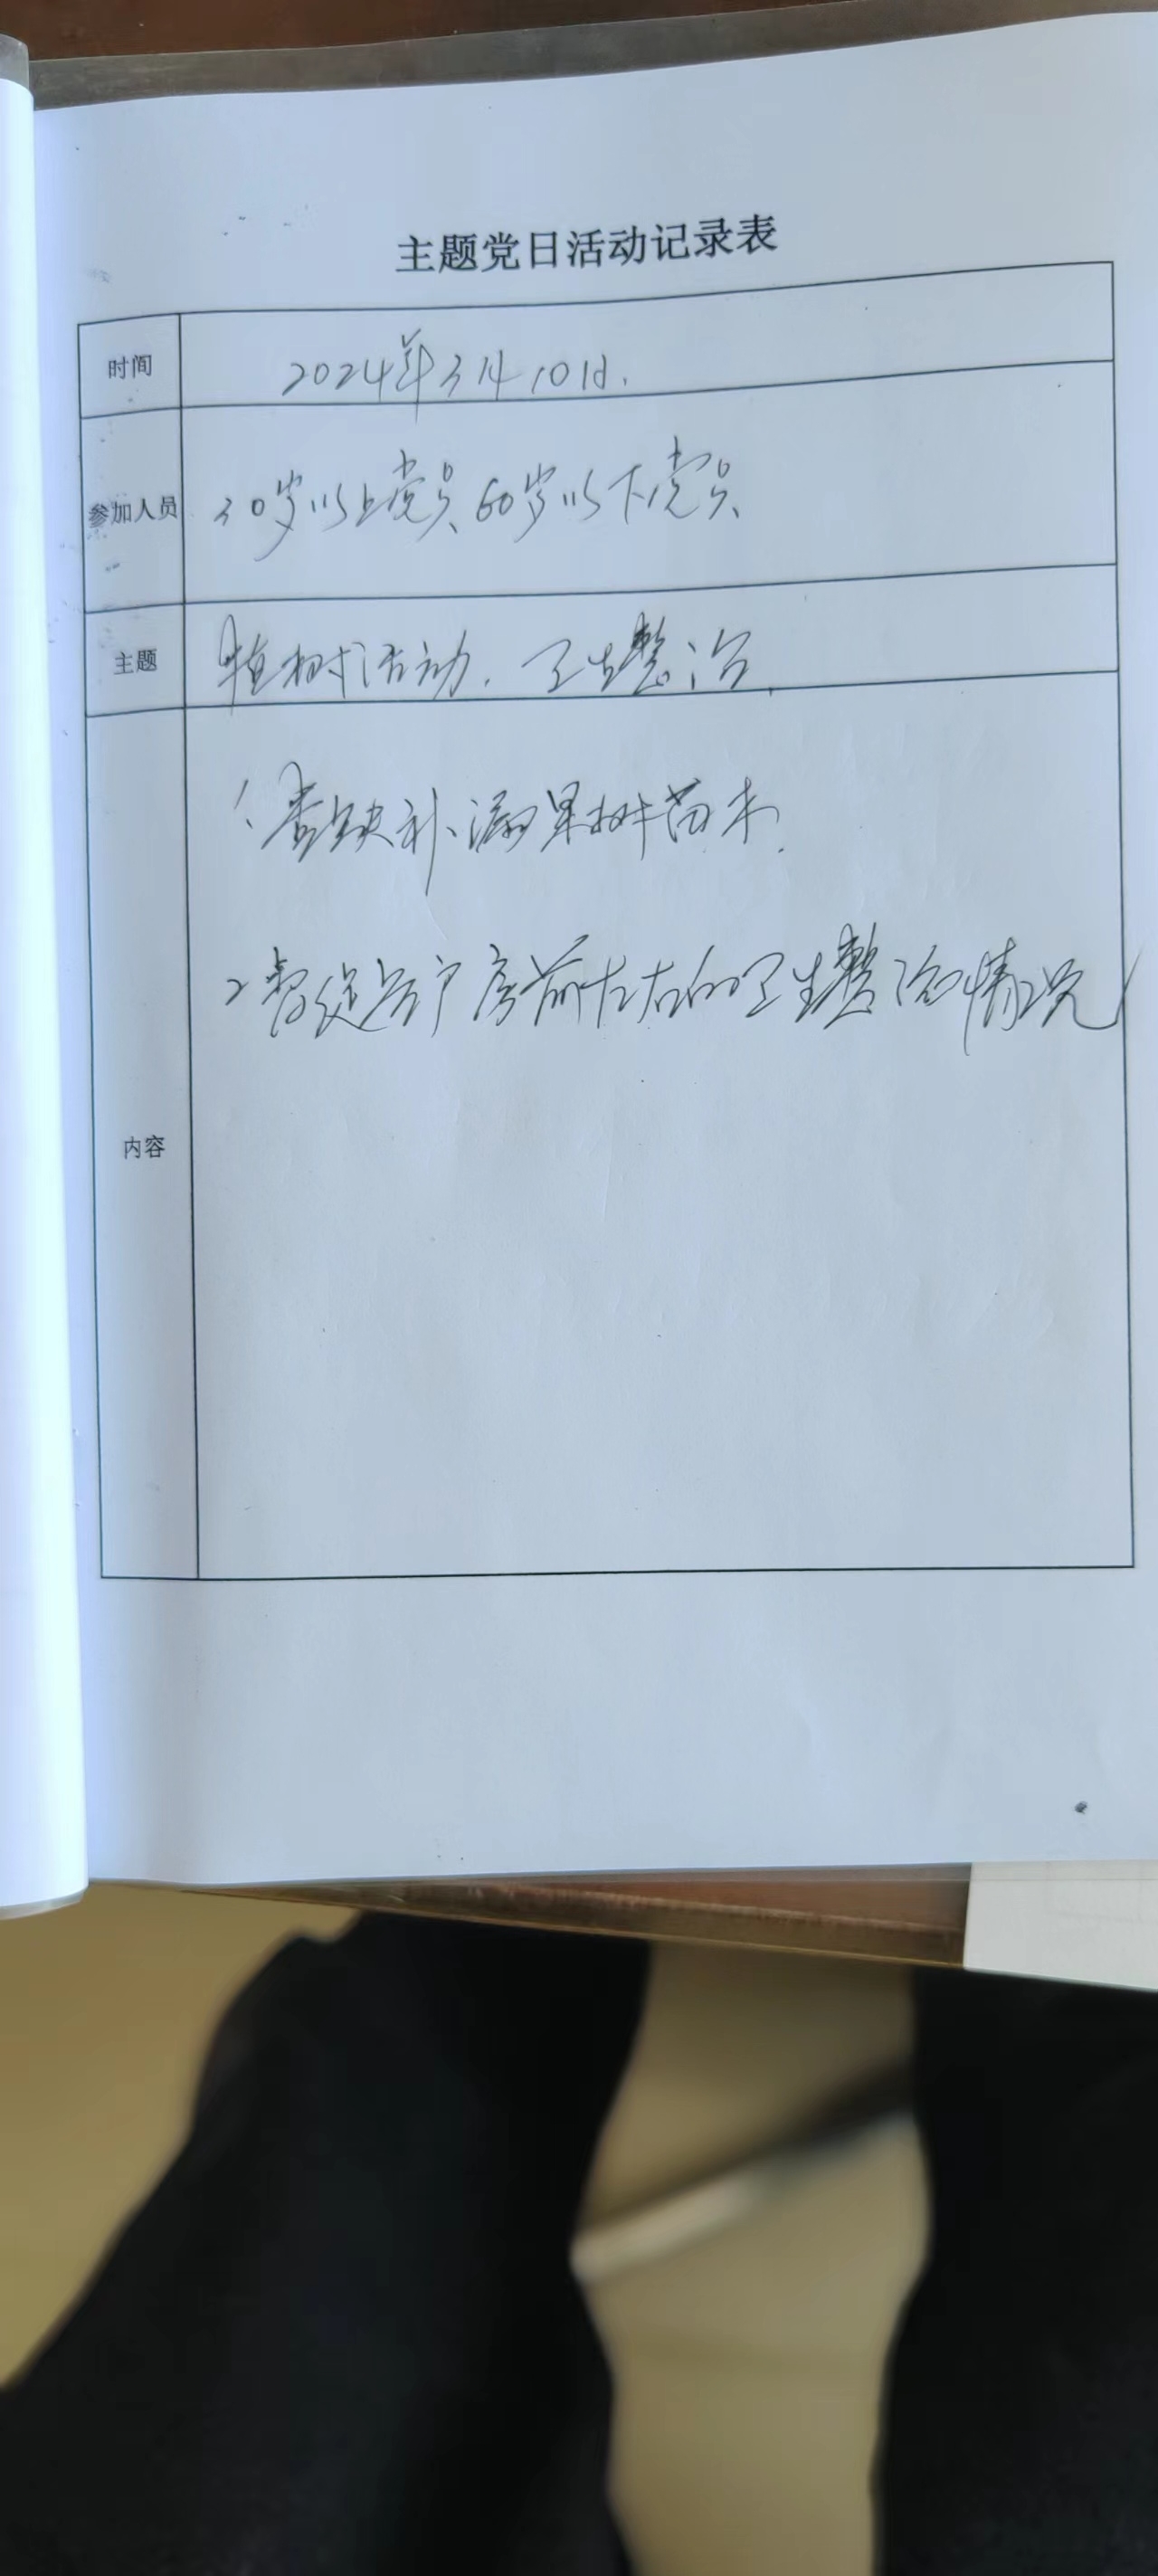 主题党日活动记录表
时间 2024年3月10日.
参加人员 30岁以上党员、60岁以下党员、
主题 植树活动. 卫生整治.
1、查缺补漏果树苗木.
2、督促各户房前左右的卫生整治情况
内容